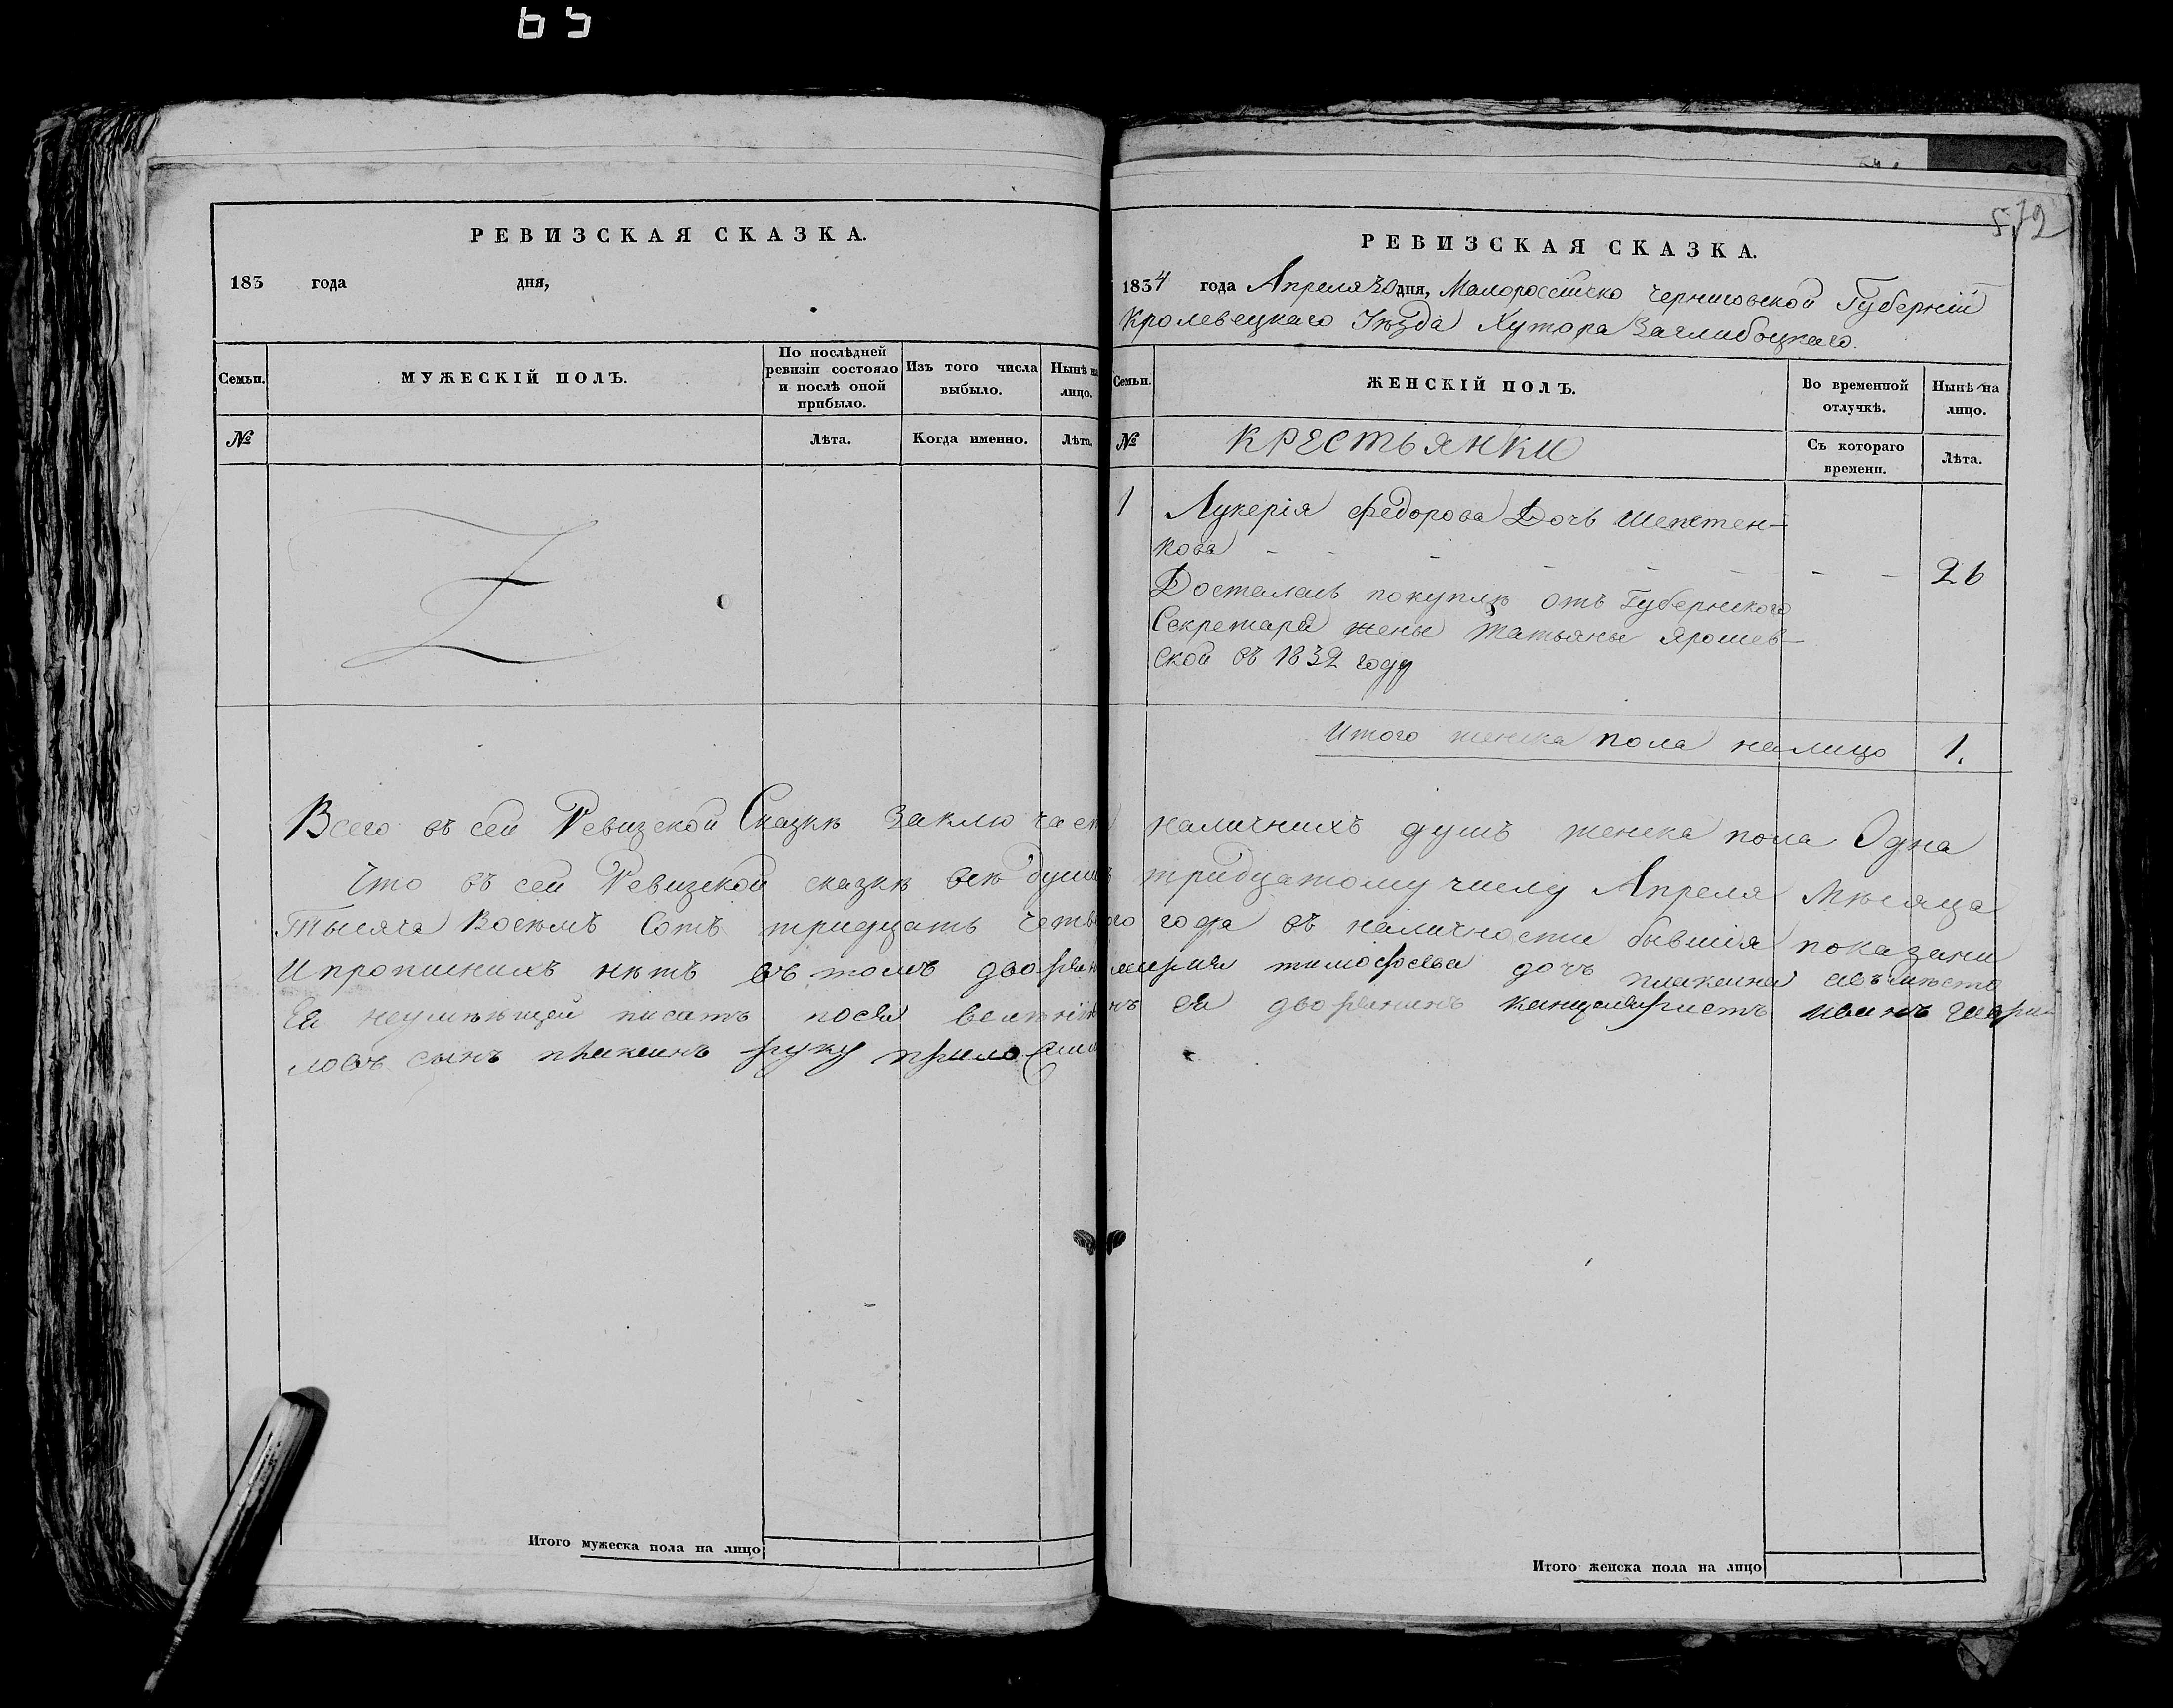 65
РЕВИЗСКАЯ СКАЗКА.
183 года дня,
Семьи. МУЖЕСКІЙ ПОЛЪ. По послѣдней ревизіи состояло и послѣ оной прибыло. Изъ того числа выбыло. Нынѣ на лицо.
№ Лѣта. Когда именно. Лѣта.
Итого мужеска пола на лицо
572
РЕВИЗСКАЯ СКАЗКА.
1834 года Апреля 30 дня, Малоросійско Черниговской Губерніи
Кролевецкаго Уѣзда Хутора Заглибоцкаго.
Семьи. ЖЕНСКІЙ ПОЛЪ. Во временной отлучкѣ. Нынѣ на лицо.
№ Крестьянки Съ котораго времени. Лѣта.
1 Лукерія Федорова Дочь Шепетен-
кова - - - - - - - - 26
Досталась покупкѣ отъ Губернскаго
Секретаря жены Татьяны Ярошев-
ской въ 1832 году
Итого женска пола налицо 1.
Всего въ сей Ревизской Сказкѣ Заключаен наличнихъ душъ женска пола Одна
Что въ сей Ревизской сказкѣ всѣ душѣ тридцатому числу Апреля Мѣсяца
Тысяча Восѣмъ Сотъ тридцать четвього года въ наличности бывшія показани
И прописнихъ нѣтъ въ томъ дворян мария тимофѣева дочъ плакина авъмѣсто
Ея неумѣющей писать посля велѣнію ея дворянинъ канцеляристъ иванъ гаври
ловъ сынъ плакинъ руку приложил
Итого женска пола на лицо